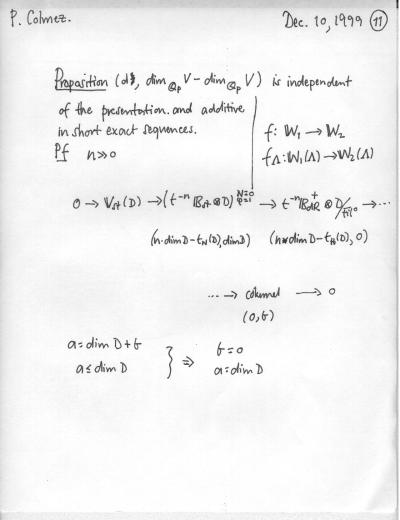 P. Colmez.
Dec. 10, 1999 (11)
Proposition (d, dim_{Q_p} V - dim_{Q_p} V) is independent
of the presentation. and additive
in short exact sequences.
Pf n≫0
f: W_1 → W_2
f_Λ: W_1(Λ) → W_2(Λ)
0 → V_{st}(D) → (t^{-n} B_{st} ⊗ D)^{N=0}_{φ=1} → t^{-n} B_{dR}^+ ⊗ D/fil^0 → ...
(n·dim D - t_N(D), dim D) (n·dim D - t_H(D), 0)
... → cokernel → 0
(0, b)
a = dim D + b
a ≤ dim D
} ⇒
b = 0
a = dim D